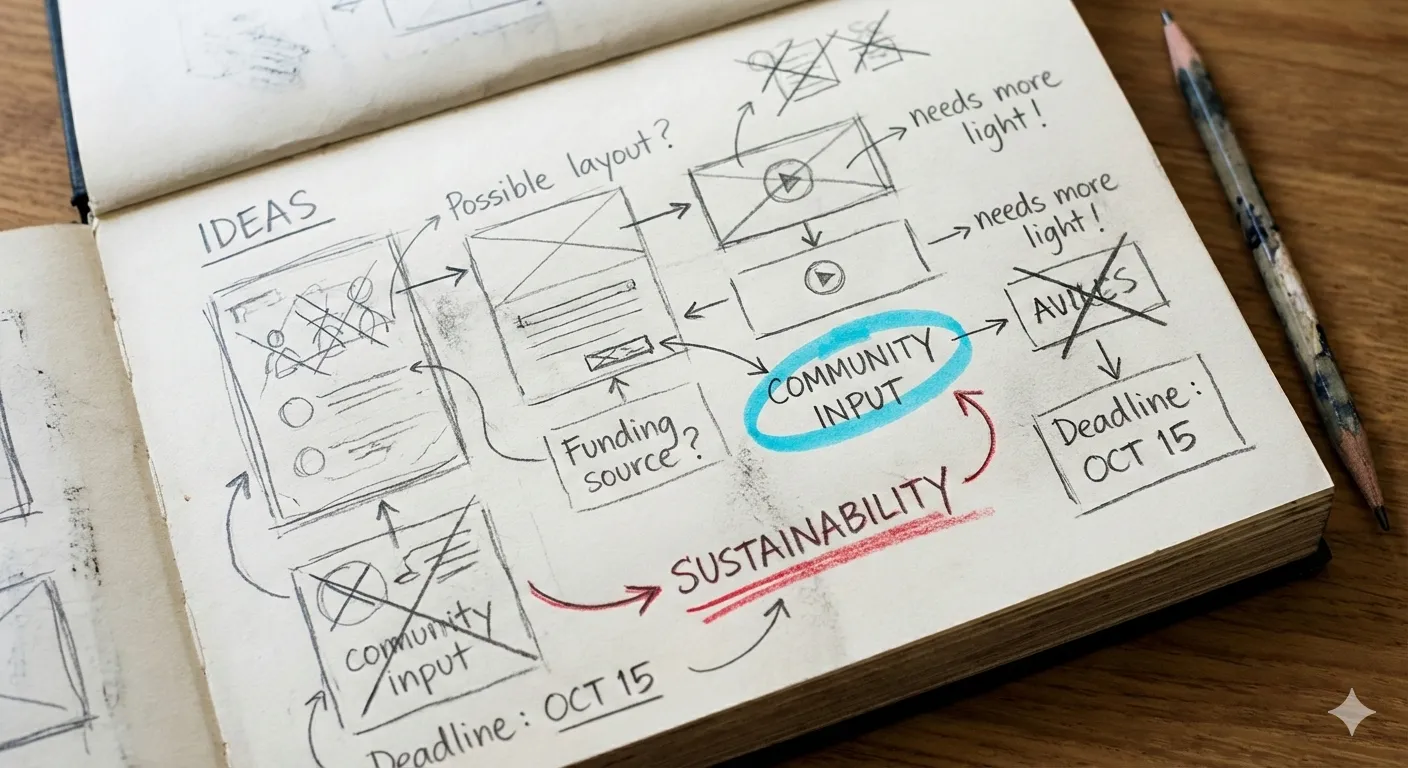 IDEAS
Possible layout?
needs more
light!
needs more
light!
COMMUNITY
INPUT
Funding
source?
Deadline:
OCT 15
SUSTAINABILITY
community
input
Deadline: OCT 15